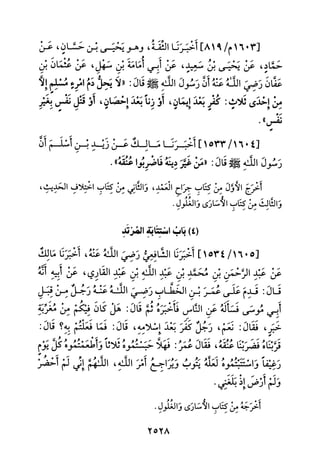 [١٦٠٣م/ ٨١٩] أَخْبَرَنَا الثِّقَةُ، وهو يَحْيَى بْن حَسَّانٍ، عَنْ
حَمَّادٍ، عَنْ يَحْيَى بْنِ سَعِيدٍ، عَنْ أَبِي أُمَامَةَ بْنِ سَهْلٍ، عَنْ عُثْمَانَ بْنِ
عَفَّانَ رَضِيَ اللَّهُ عَنْهُ أَنَّ رَسُولَ اللَّهِ ﷺ قَالَ: «لَا يَحِلُّ دَمُ امْرِئٍ مُسْلِمٍ إِلَّا
مِنْ إِحْدَى ثَلَاثٍ: كُفْرٍ بَعْدَ إِيمَانٍ، أَوْ زِناً بَعْدَ إِحْصَانٍ، أَوْ قَتْلِ نَفْسٍ بِغَيْرِ
نَفْسٍ».
[١٦٠٤/ ١٥٣٣] أَخْبَرَنَا مَالِكٌ عَنْ زَيْدِ بْنِ أَسْلَمَ أَنَّ
رَسُولَ اللَّهِ ﷺ قَالَ: «مَنْ غَيَّرَ دِينَهُ فَاضْرِبُوا عُنُقَهُ».
أَخْرَجَ الأَوَّلَ مِنْ كِتَابِ جِرَاحِ الْعَمْدِ، وَالثَّانِيَ مِنْ كِتَابِ اخْتِلَافِ الحَدِيثِ،
وَالثَّالِثَ مِنْ كِتَابِ الأُسَارَى وَالْغُلُولِ.
(٤) بَابُ اسْتِتَابَةِ المُرْتَدِّ
[١٦٠٥/ ١٥٣٤] أَخْبَرَنَا الشَّافِعِيُّ رَضِيَ اللَّهُ عَنْهُ، أَخْبَرَنَا مَالِكٌ
عَنْ عَبْدِ الرَّحْمَنِ بْنِ مُحَمَّدِ بْنِ عَبْدِ اللَّهِ بْنِ عَبْدِ القَارِي، عَنْ أَبِيهِ أَنَّهُ
قَالَ: قَدِمَ عَلَى عُمَرَ بْنِ الخَطَّابِ رَضِيَ اللَّهُ عَنْهُ رَجُلٌ مِنْ قِبَلِ
أَبِي مُوسَى فَسَأَلَهُ عَنِ النَّاسِ فَأَخْبَرَهُ ثُمَّ قَالَ: هَلْ كَانَ فِيكُمْ مِنْ مُغَرِّبَةِ
خَبَرٍ، فَقَالَ: نَعَمْ، رَجُلٌ كَفَرَ بَعْدَ إِسْلَامِهِ، قَالَ: فَمَا فَعَلْتُمْ بِهِ؟ قَالَ:
قَرَّبْنَاهُ فَضَرَبْنَا عُنُقَهُ، فَقَالَ عُمَرُ: فَهَلَّا حَبَسْتُمُوهُ ثَلَاثاً وَأَطْعَمْتُمُوهُ كُلَّ يَوْمٍ
رَغِيفاً وَاسْتَتَبْتُمُوهُ لَعَلَّهُ يَتُوبُ وَيُرَاجِعُ أَمْرَ اللَّهِ، اللَّهُمَّ إِنِّي لَمْ أَحْضُرْ
وَلَمْ أَرْضَ إِذْ بَلَغَنِي.
أَخْرَجَهُ مِنْ كِتَابِ الأُسَارَى وَالْغُلُولِ.
٢٥٢٨